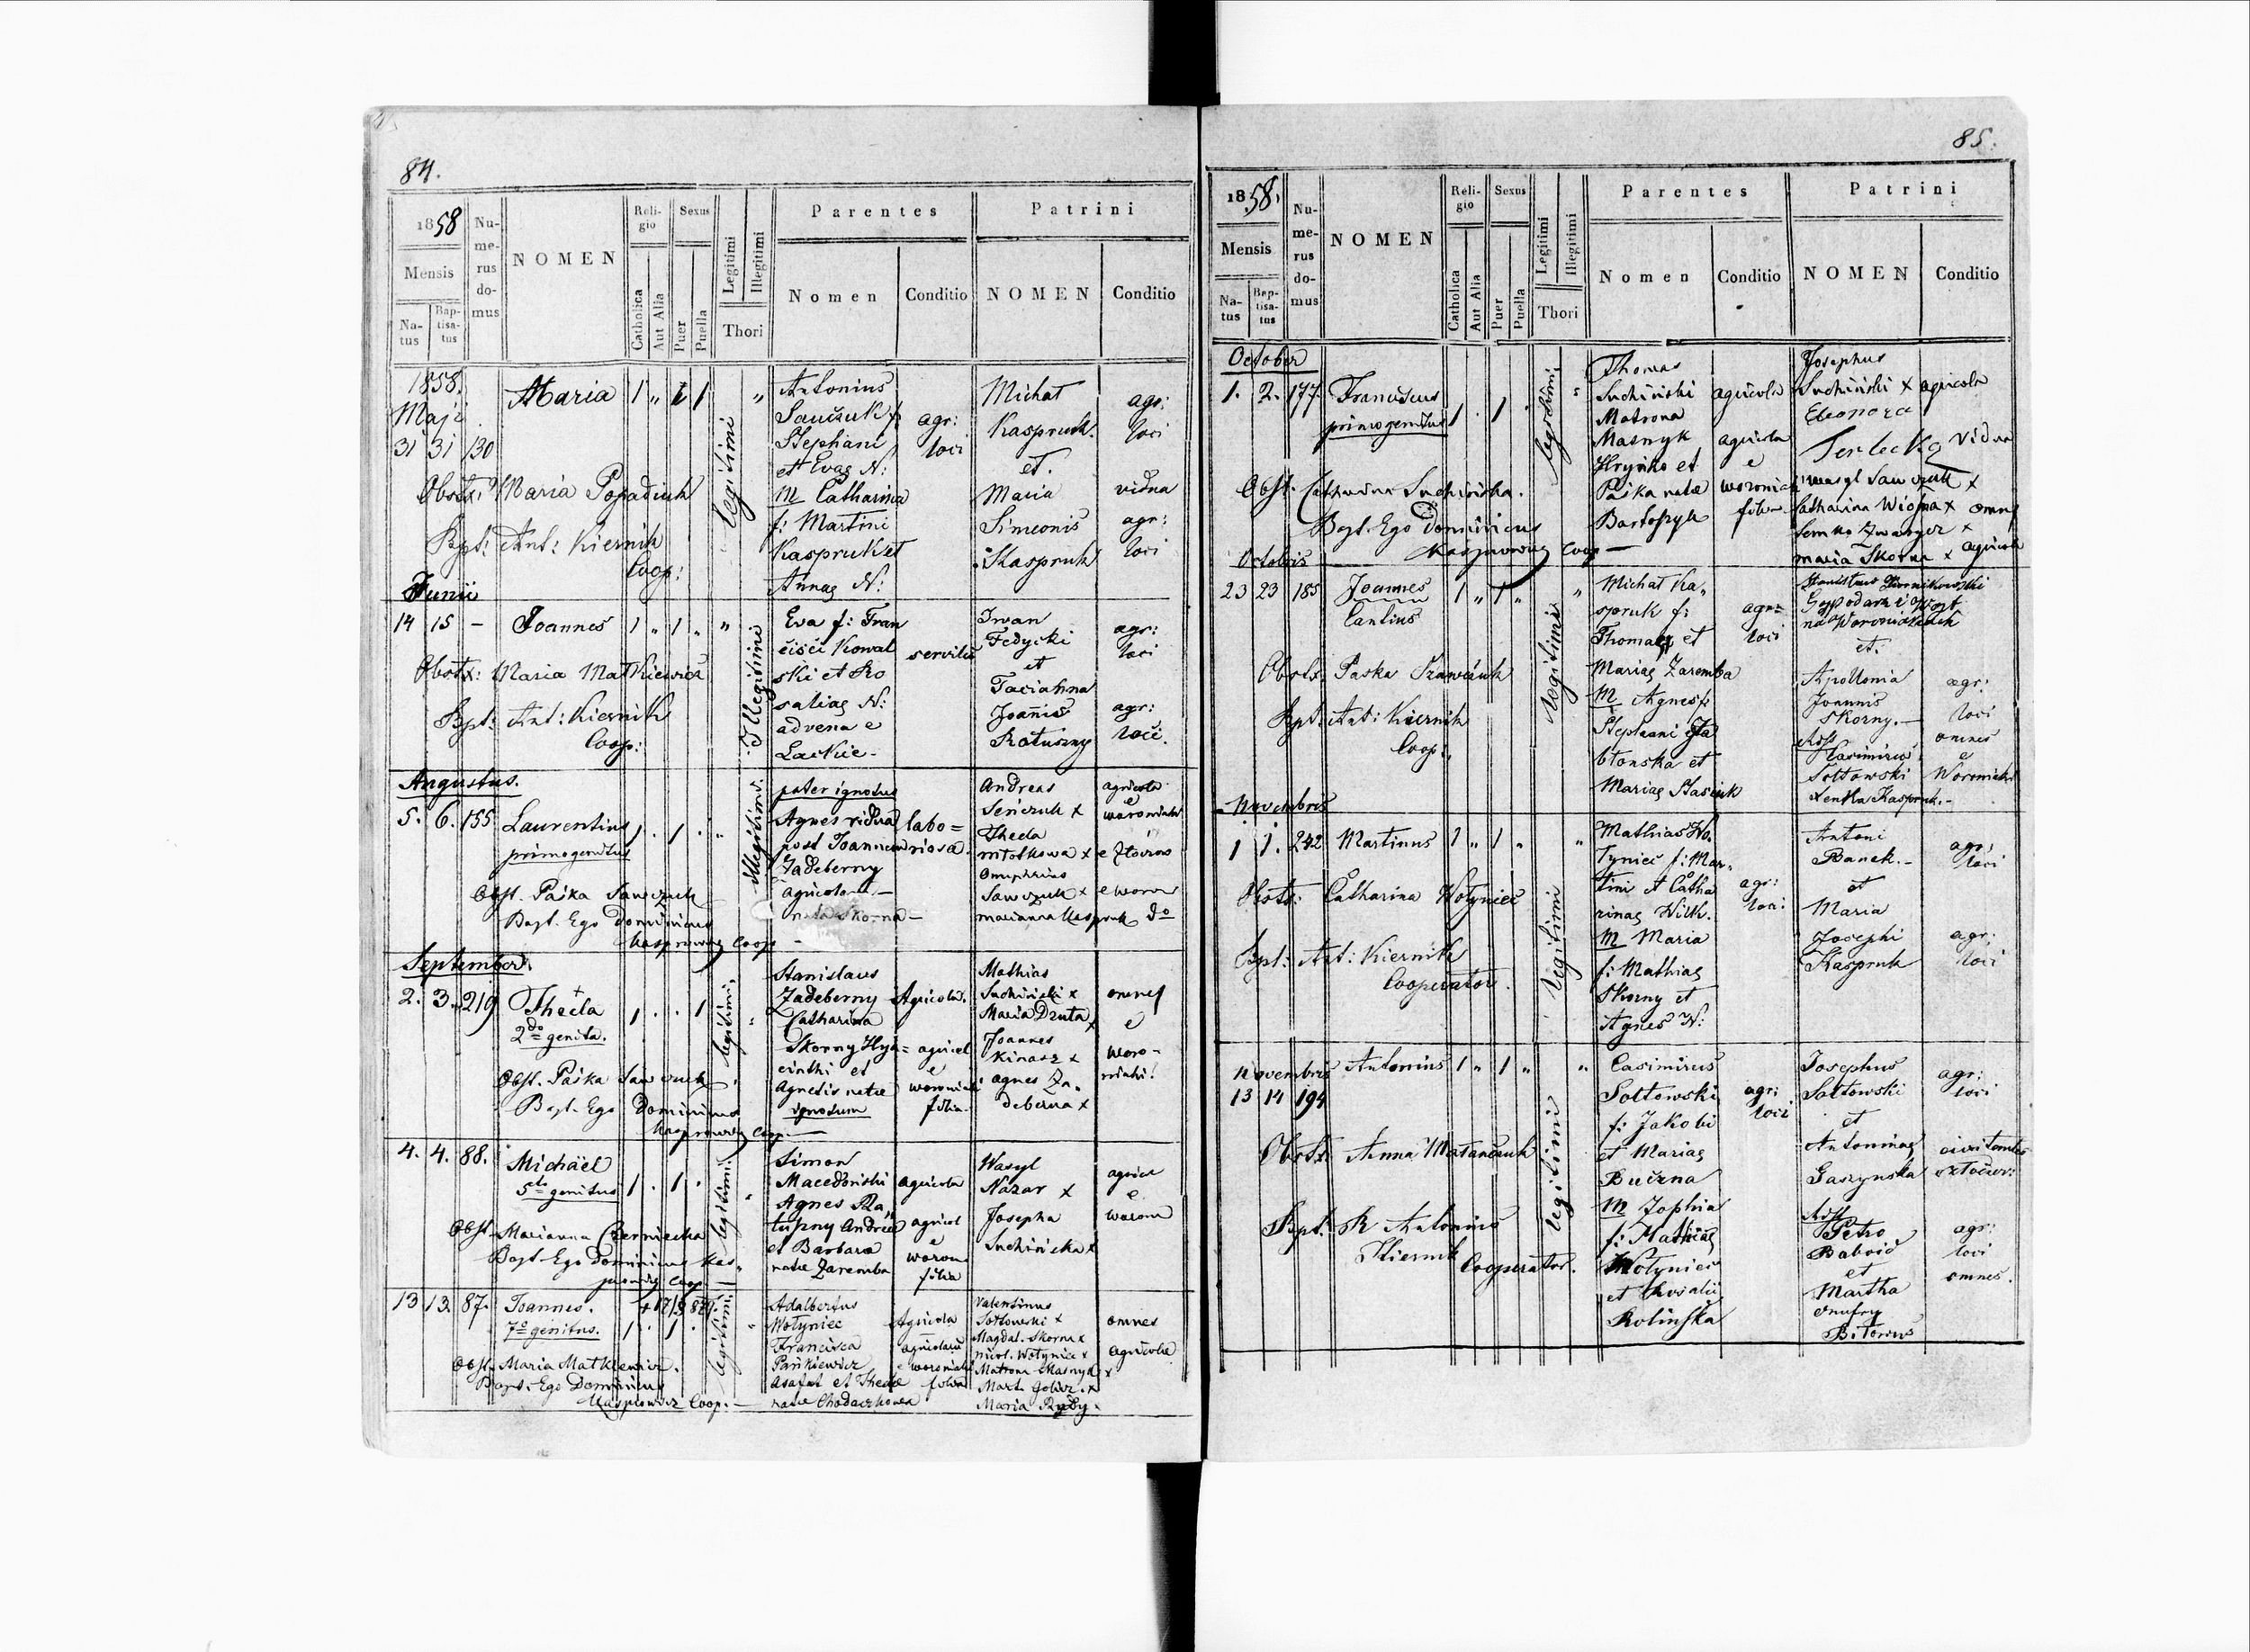 84.
1858
Mensis
Na-
tus
Bap-
tisa-
tus
Nu-
me-
rus
do-
mus
NOMEN
Reli-
gio
Catholica
Aut Alia
Sexus
Puer
Puella
Legitimi
Illegitimi
Thori
Parentes
Nomen
Conditio
Patrini
NOMEN
Conditio
1858.
Maji
31 31 130
Maria 1 „ 1
legitimi
Obstx: Maria Popadiuk
Bpt: Ant: Kiernik
Coop:
Antonius
Sauczuk f:
Stephani
et Evae N:
M Catharina
f: Martini
Kaspruk et
Annae N:
agr:
loci
Michał
Kaspruk.
et.
Maria
Simeonis
Kaspruk
agr:
loci
vidua
agr:
loci
Junii
14 15 - Joannes 1 „ 1 „ „
Illegitimi
Obstx: Maria Matkiewicz
Bpt: Ant: Kiernik
Coop:
Eva f: Fran
cisci Kowal
ski et Ro
saliae N:
advena e
Lackie -
Iwan
Fedycki
et
Tacianna
Joannis
Ratuszny
agr:
loci
agr:
loci.
Augustus.
5. 6. 155 Laurentius 1 . 1 .
primogenitus
Illegitimi
Obst. Paśka Sawczuk
Bapt. Ego Dominicus
Kasprowicz Coop -
pater ignotus
Agnes vidua
post Joannem
Zadeberny
agricolam -
nata Skorna -
labo=
riosa.
Andreas
Senczuk x
Theda
Onuphrius
Sawczuk x
marianna Kaspruk
agricola
e
woroniaki
do
September.
2. 3. 219 Thecla 1 . . 1
2do genita.
legitimi
Obst. Paśka Sawczuk
Bapt. Ego Dominicus
Kasprowicz Coop. -
Stanislaus
Zadeberny
Catharina
Skorny Hya=
cinthi et
Agnetis natae
ignotum
Agricola.
agricol
e
woroniaki
filia.
Mathias
Suchinski x
Maria Druta x
Joannes
Kinasz x
agnes Za„
deberna x
omnes
e
woro-
niaki.
4. 4. 88. Michäel
5to genitus 1 . 1 .
legitimi
Obst. Marianna Czerniecka
Bapt. Ego Dominicus Kas„
prowicz Coop.
Simon
Macedoński
Agnes Ra„
tuszny Andreae
et Barbara
natae Zaremba
agricola
agricol
e
woron
filia
Wasyl
Nazar x
Josepha
Suchinska x
agricol
e
woron
13 13. 87. Joannes.
7o genitus. 1 . 1 .
legitimi
Obst. Maria Matkiewicz.
Bapt. Ego Dominicus
Kasprowicz Coop. -
Adalbertus
Wołyniec
Francisca
Pańkiewicz
Asafat et Theclae
natae Chodaczkowa
Agricola
e woroniaki
filia
Valentinus
Sołtowski x
Magdal. Skorna x
Nicol. Wołyniec x
Matrona Masnyk x
Maria
omnes
agricolae
85.
1858.
Mensis
Na-
tus
Bap-
tisa-
tus
Nu-
me-
rus
do-
mus
NOMEN
Reli-
gio
Catholica
Aut Alia
Sexus
Puer
Puella
Legitimi
Illegitimi
Thori
Parentes
Nomen
Conditio
Patrini
NOMEN
Conditio
October
1. 2. 177. Franciscus
primogenitus 1 . 1 .
legitimi
Obst. Catharina Suchinska.
Bapt. Ego Dominicus
Kasprowicz Coop -
Thomas
Suchiński
Matrona
Masnyk
Hryńko et
Paśka natae
Bartoszyk
agricola
agricola
e
woroniak
filia -
Josephus
Suchiński x agricola
Eleonora
Terlecka vidua
wasyl Sawczuk x
Catharina x omnes
Semko x
maria Skorna x agricol
Octobris
23 23 185 Joannes 1 „ 1 „ „
Cantius
legitimi
Obstx Paska
Bpt: Ant: Kiernik
Coop:
Michał Ka„
spruk f:
Thomae et
Mariae Zaremba
M Agnes f:
Stephani Ja
błonska et
Mariae Stasiuk
agr:
loci
Gospodarz i Wojt
na Woroniakach
et.
Apollonia
Joannis
Skorny. -
Casimirus
Sołtowski
Kaspruk. -
agr:
loci
omnes
e
Woroniaki
Novembris
1 1. 242 Martinus 1 „ 1 „ „
legitimi
Obstx: Catharina Wołyniec
Bpt: Ant: Kiernik
Cooperator.
Mathias Wo„
łyniec f: Mar„
tini et Catha
rinae Wilk.
M Maria
f: Mathiae
Skorny et
Agnes N:
agr:
loci
Antoni
Banek. -
et
Maria
Josephi
Kaspruk
agr:
loci
agr:
loci
Novembris
13 14 194
Antonius 1 „ 1 „ „
legitimi
Obstx: Anna Matańczuk
Bpt: R Antonius
Kiernik Cooperator.
Casimirus
Sołtowski
f: Jakobi
et Mariae
Buczna
M Zophia
f: Mathiae
Wołyniec
et Rosalii
Rolinska
agr:
loci
Josephus
Sołtowski
et
Antoninae
Gaszynska
Petro
Baboid
et
Martha
Onufry
agr:
loci
agr:
loci
omnes.